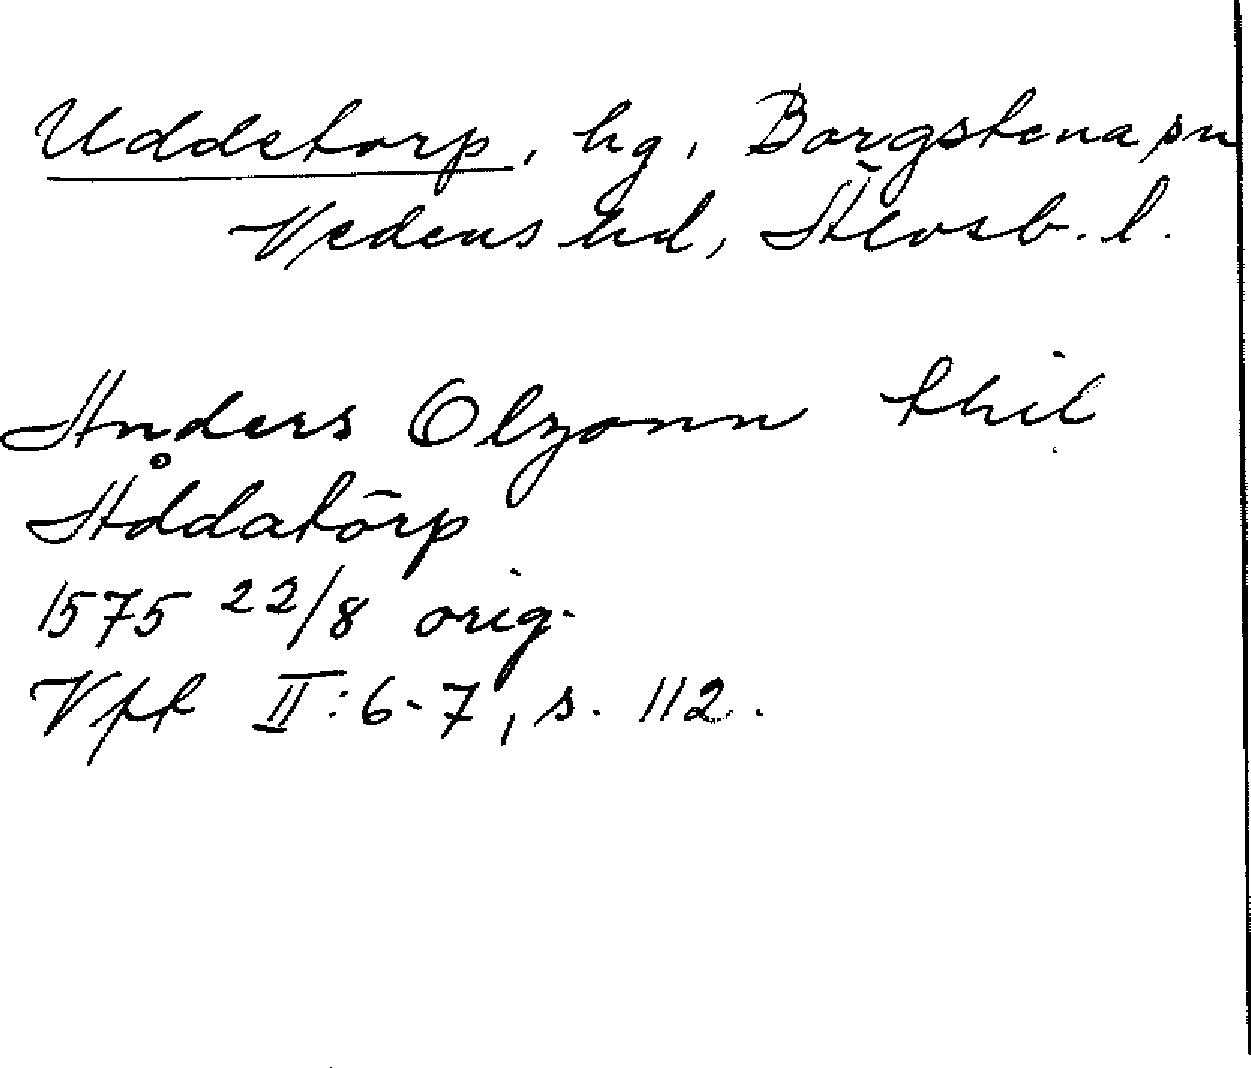 Uddetorp, hg, Borgstena sn
Vedens hd, Älvsb. l.
Anders Olzonn thil
Åddatörp
1575 22/8 orig.
Vpf II:6-7, s. 112.